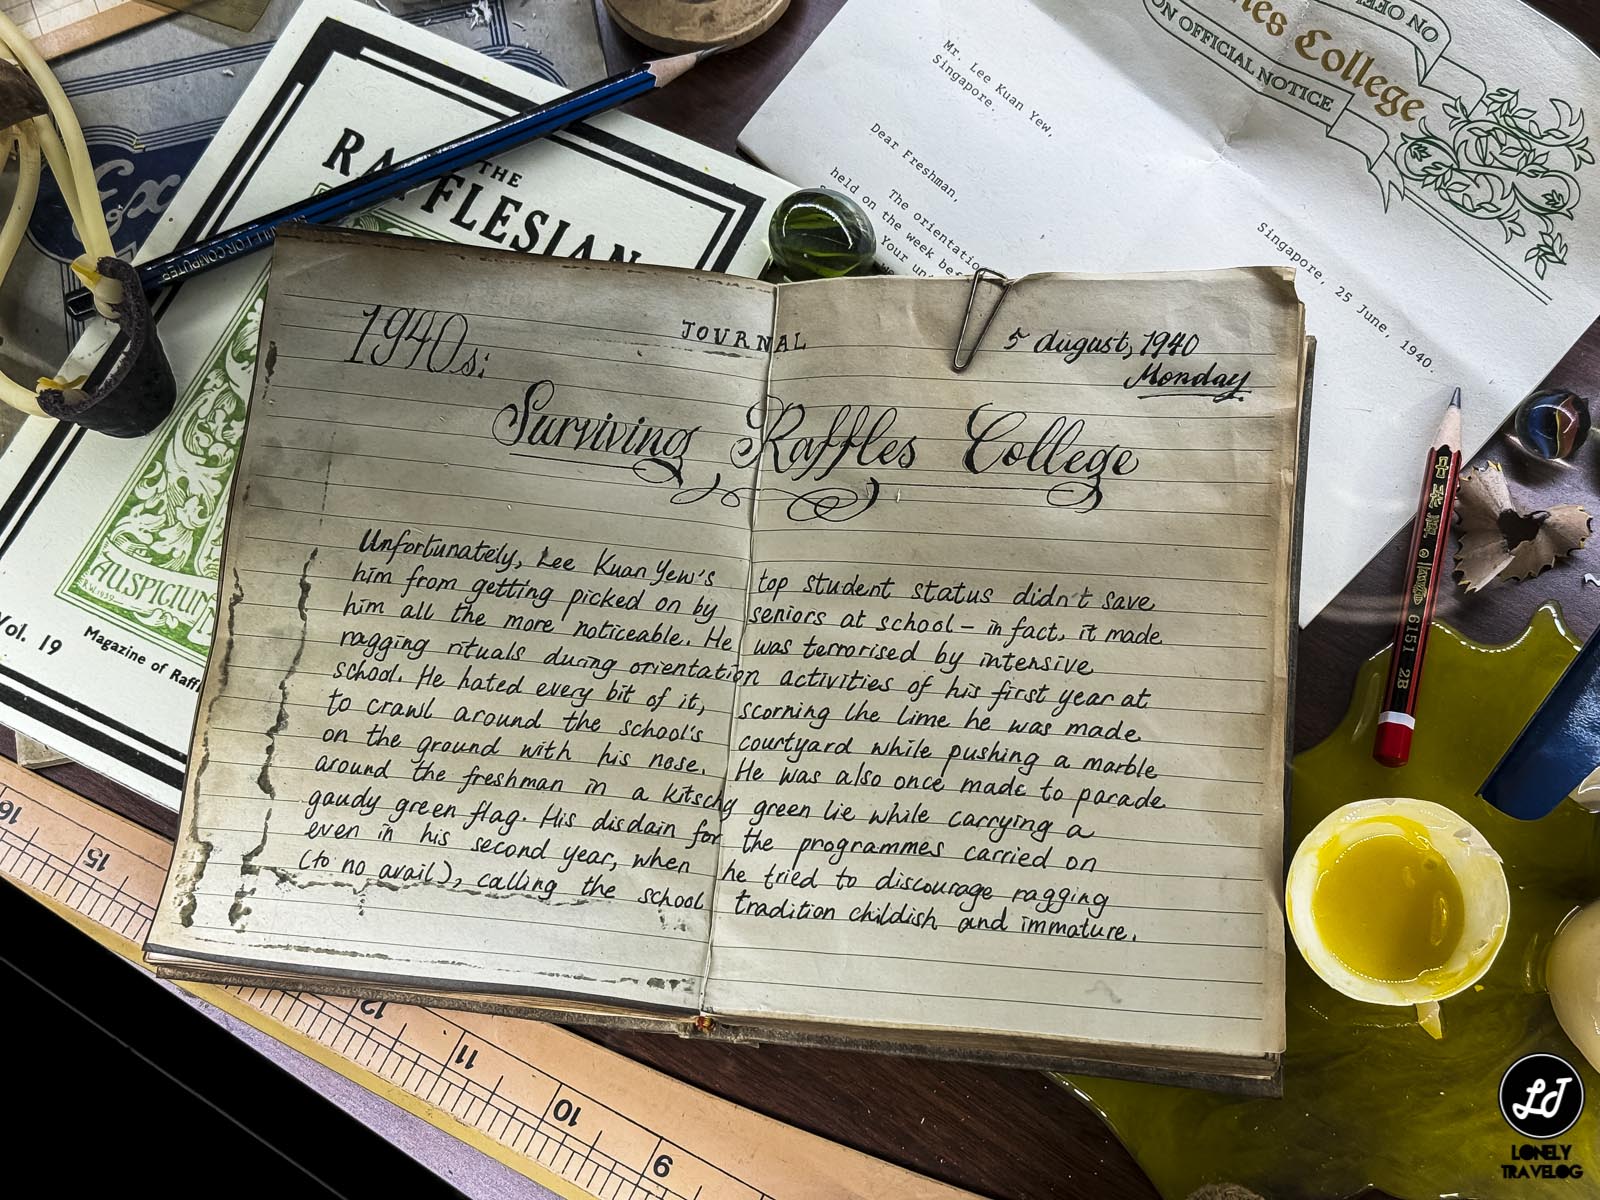 THE
RAFFLESIAN
AUSPICIUM
R.W. 1939
Vol. 19
Magazine of Raff
Ex
FOR COMPUTER
ON OFFICIAL NOTICE
College
Mr. Lee Kuan Yew,
Singapore.
Singapore, 25 June, 1940.
Dear Freshman,
The orientatio
held on the week bef
Your un
1940s:
JOURNAL
5 August, 1940
Monday
Surviving Raffles College
Unfortunately, Lee Kuan Yew's top student status didn't save
him from getting picked on by seniors at school – in fact, it made
him all the more noticeable. He was terrorised by intensive
ragging rituals during orientation activities of his first year at
school. He hated every bit of it, scorning the time he was made
to crawl around the school's courtyard while pushing a marble
on the ground with his nose. He was also once made to parade
around the freshman in a kitschy green tie while carrying a
gaudy green flag. His disdain for the programmes carried on
even in his second year, when he tried to discourage ragging
(to no avail), calling the school tradition childish and immature.
6151 2B
16
15
12
11
10
9
LJ
LONELY
TRAVELOG